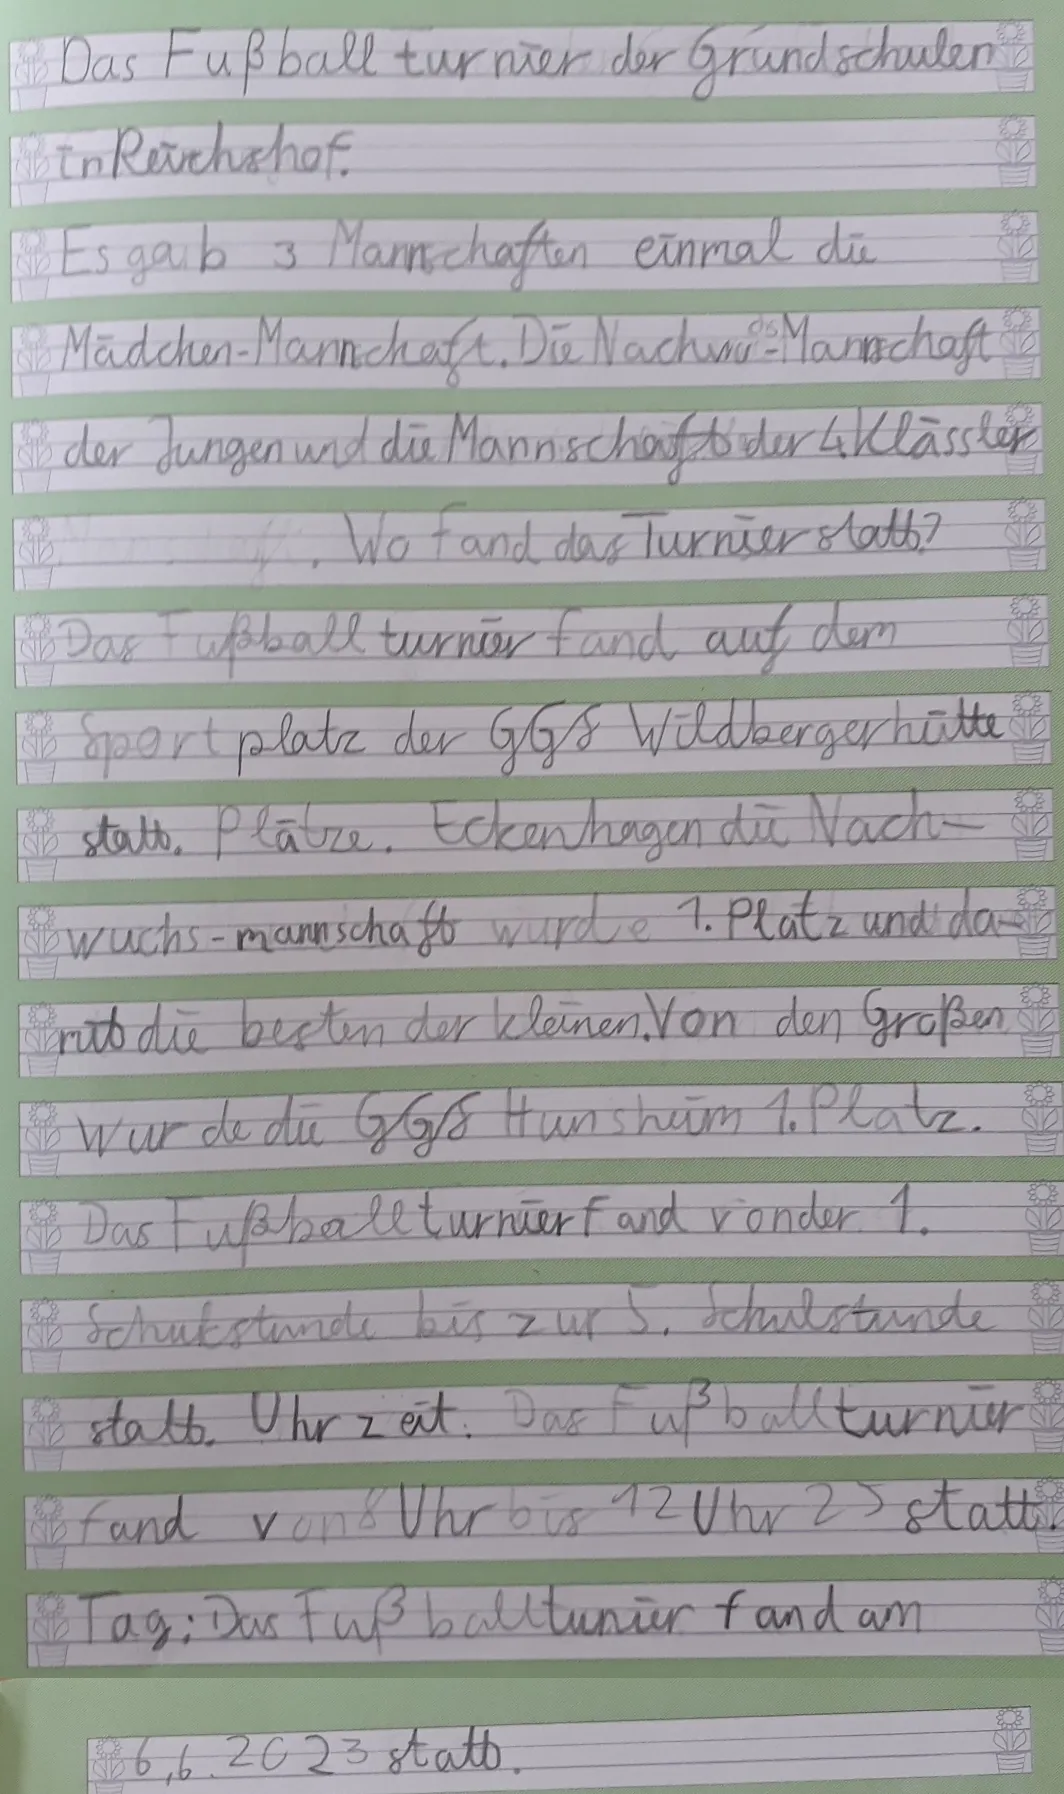 Das Fußballturnier der Grundschulen
in Reichshof.
Es gab 3 Mannschaften einmal die
Mädchen-Mannschaft. Die Nachwuchs-Mannschaft
der Jungen und die Mannschaft der 4 Klässler
. Wo fand das Turnier statt?
Das Fußballturnier fand auf dem
Sportplatz der GGS Wildbergerhütte
statt. Plätze. Eckenhagen die Nach-
wuchs-mannschaft wurde 1. Platz und da-
mit die besten der kleinen. Von den Großen
wurde die GGS Hunsheim 1. Platz.
Das Fußballturnier fand von der 1.
Schulstunde bis zur 5. Schulstunde
statt. Uhrzeit: Das Fußballturnier
fand von 8 Uhr bis 12 Uhr 25 statt.
Tag: Das Fußballtunier fand am
6.6.2023 statt.